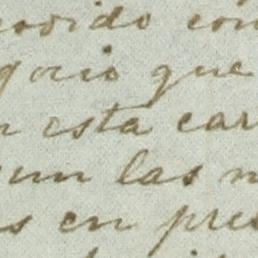 ovido con
gocio que
n esta car
un las n
s en pres